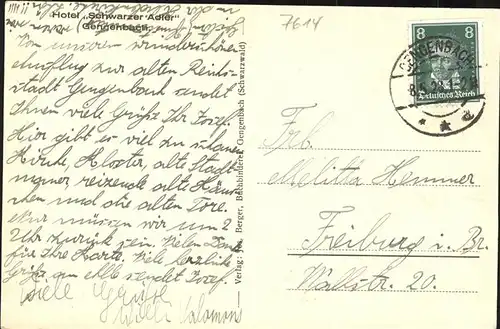 Hotel „Schwarzer Adler"
Gengenbach
Von unserem wunderschönen
Ausflug zur alten Reichs-
stadt Gengenbach sendet
Ihnen viele Grüße Ihr Josef.
Hier gibt es viel zu schauen
Kirche, Kloster, alte Stadt-
mauer, reizende alte Häus-
chen und die alten Tore.
Nur müssen wir um 2
Uhr zurück sein. Vielen Dank
für Ihre Karte. Viele herzliche
Grüße an alle sendet Josef.
Viele Grüße
Willi Salomon
Verlag: Berger, Buchbinderei, Gengenbach (Schwarzwald)
7614
8 8
Deutsches Reich
GENGENBACH
Frl.
Melitta Hemmer
Freiburg i. Br.
Wallstr. 20.